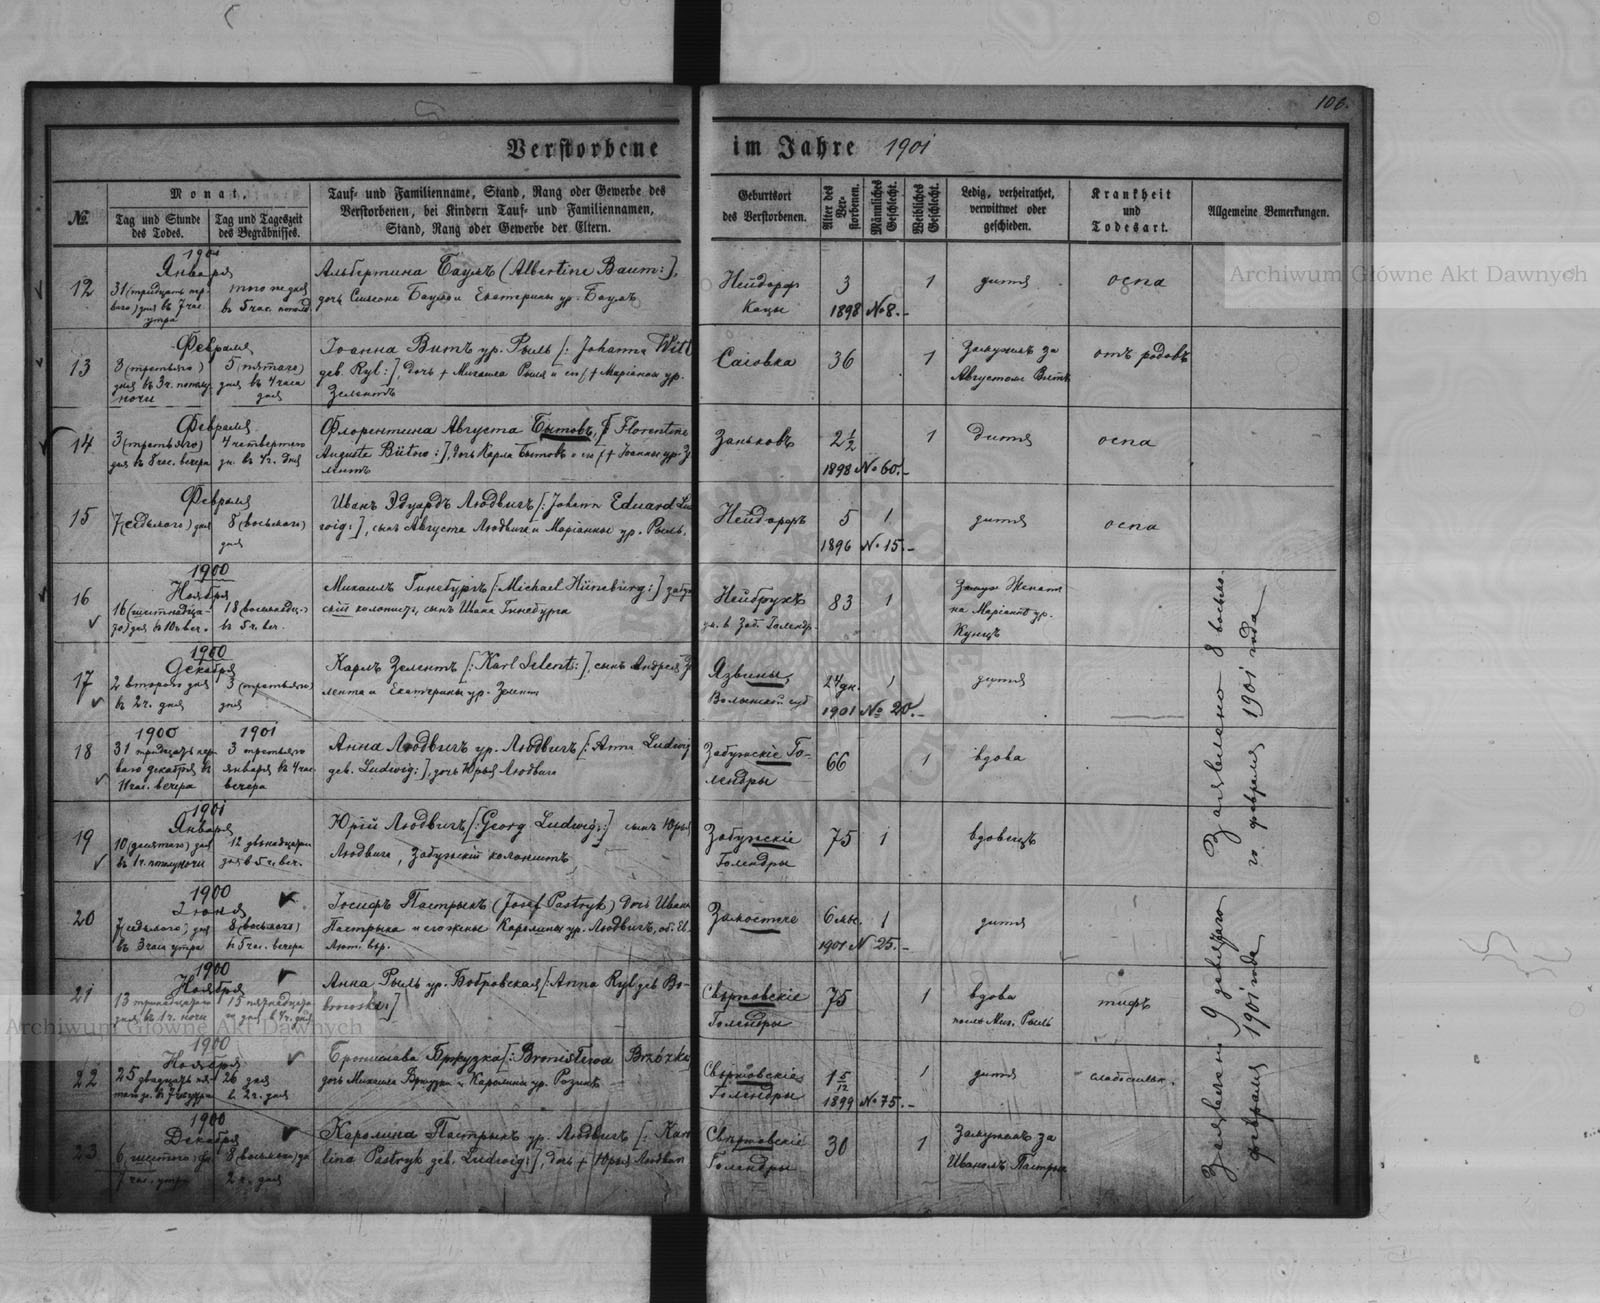 106.
Verstorbene im Jahre 1901
№
Monat,
Tag und Stunde des Todes.
Tag und Tageszeit des Begräbnisses.
Tauf- und Familienname, Stand, Rang oder Gewerbe des
Verstorbenen, bei Kindern Tauf- und Familiennamen,
Stand, Rang oder Gewerbe der Eltern.
Geburtsort
des Verstorbenen.
Alter des Verstorbenen.
Männliches Geschlecht.
Weibliches Geschlecht.
Ledig, verheirathet,
verwittwet oder
geschieden.
Krankheit
und
Todesart.
Allgemeine Bemerkungen.
12
1901
Января
31 (тридцать пер-
ваго) дня въ 7 час.
утра
того же дня
въ 5 час. пополд.
Альбертина Баумъ (Albertine Baum:],
дочь Симеона Баума и Екатерины ур. Баумъ
Нейдорфъ
3
1
дитя
оспа
1898 №8.-
13
Февраля
3 (третьяго)
дня въ 3 ч. полу
ночи
5 (пятаго)
дня въ 4 часа
дня
Іоанна Витъ ур. Рыль [: Johanna Witt
geb. Ryl:], дочь + Михаила Рыля и его + Маріанны ур.
Зелентъ
Саговка
36
1
Замужемъ за
Августомъ Витъ
отъ родовъ
14
Февраля
3 (третьяго)
дня въ 8 час. вечера
4 четвертаго
дн. въ 4 ч. дня
Флорентина Августа Бытовъ, [: Florentine
Auguste Bütow:], дочь Карла Бытовъ и его + Іоанны ур. З
лентъ
Заньковъ
2 1/2
1
дитя
оспа
1898 №60.-
15
Февраля
7 (седьмого) дня
8 (восьмого)
дня
Иванъ Эдуардъ Людвигъ [: Johann Eduard Lud
wig:], сынъ Августа Людвига и Маріанны ур. Рыль.
Нейдорфъ
5
1
дитя
оспа
1896 №15.-
16
1900
Ноября
16 (шестнадца-
го) дня въ 10 ч. веч.
18 (восемнадц.)
въ 5 ч. веч.
Михаилъ Гинебургъ [: Michael Hüneburg:] забуж
скій колонистъ, сынъ Ивана Гинебурга
Нейбрухъ
83
1
Женатъ
на Маріаннѣ ур.
Кунцъ
17
1900
Декабря
2 второго дня
въ 2 ч. дня
3 (третьяго)
дня
Карлъ Зелентъ [: Karl Selent:], сынъ Андрея З
лента и Екатерины ур. Зелентъ
Язвины,
Волынской губ
24 дн.
1
дитя
1901 № 20.-
18
1900
1901
31 тридцать пер
ваго декабря въ
11 час. вечера
3 третьяго
января въ 4 час.
вечера
Анна Людвигъ ур. Людвигъ [: Anna Ludwig
geb. Ludwig:], дочь Юрія Людвига
Забужскіе Го-
лендры
66
1
вдова
19
1901
Января
10 (десятого) дня
въ 1 ч. полуночи
12 двѣнадцатого
дня в 5 ч. веч.
Юрій Людвигъ [: Georg Ludwig:] сынъ Юрія
Людвига, Забужскій колонистъ
Забужскіе
Голендры
75
1
вдовецъ
20
1900
7 (седьмого) дня
въ 3 часа утра
8 (восьмого)
въ 5 час. вечера
Іосифъ Пастрыкъ (Josef Pastryk) сынъ Ивана
Пастрыка и его жены Каролины ур. Людвигъ, об. Ев.
Лют. вѣр.
Замостече
6 мѣс.
1
дитя
1901 N 25.-
21
1900
Ноября
13 тринадцатаго
дня въ 1 ч. ночи
15 пятнадцата
го дня в 4 ч. дня
Анна Рыль ур. Бобровская [: Anna Ryl geb Bo-
browska:]
Свѣржовскіе
Голендры
75
1
вдова
послѣ Мих. Рыль
тифъ
22
1900
Ноября
25 двадцать пя-
таго д. въ 7 ч. утра
26 дня
в 2 ч. дня
Бронислава Бржузка [: Bronisława Brzózka
дочь Михаила Бржузки и Каролины ур. Розинъ
Свѣржовскіе
Голендры
1 5/12
1
дитя
1899 №75.-
23
1900
Декабря
6 (шестого) дн
7 час. утра
8 (восьмого) дн
2 ч. дня
Каролина Пастрыкъ ур. Людвигъ [: Karo
lina Pastryk geb. Ludwig:], дочь + Юрія Людвига
Свѣржовскіе
Голендры
30
1
Замужемъ за
Иваномъ Пастрык
Заявлено 8 восьмо-
го февраля 1901 года
Заявлено 9 девятаго
февраля 1901 года
Archiwum Główne Akt Dawnych
Archiwum Główne Akt Dawnych